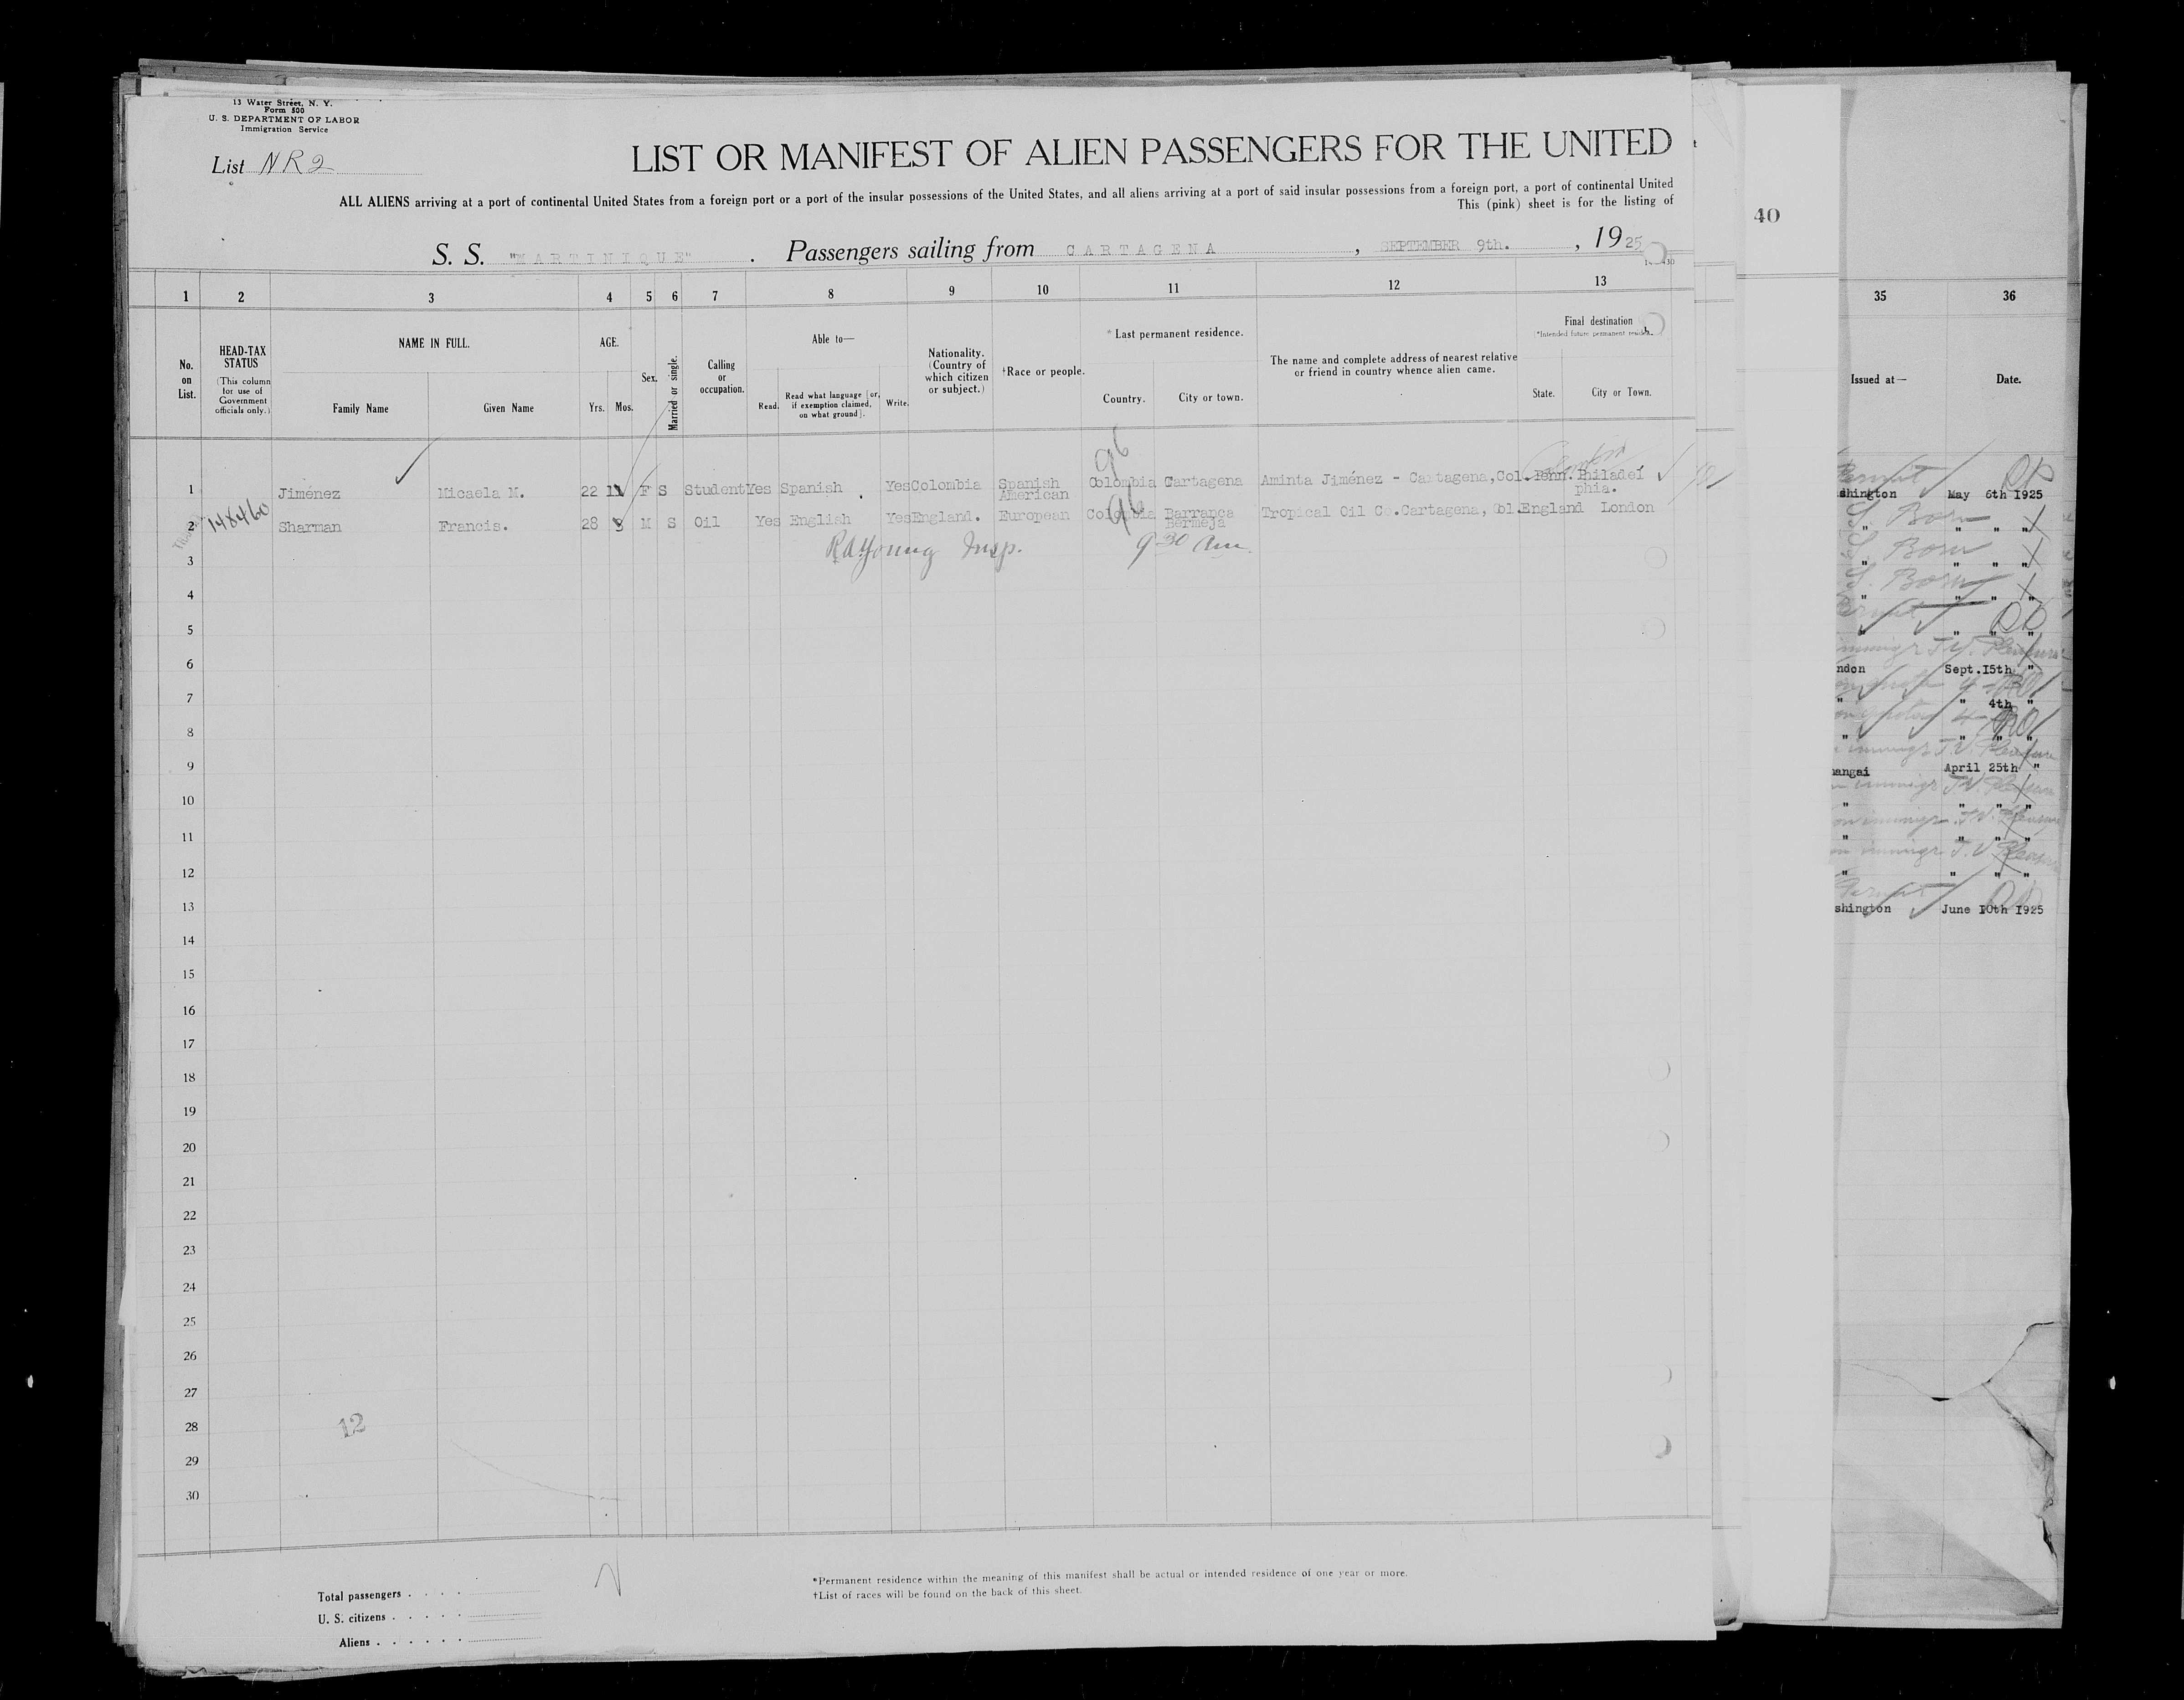 13 Water Street, N. Y.
Form 500
U. S. DEPARTMENT OF LABOR
Immigration Service
List NR2
LIST OR MANIFEST OF ALIEN PASSENGERS FOR THE UNITED
ALL ALIENS arriving at a port of continental United States from a foreign port or a port of the insular possessions of the United States, and all aliens arriving at a port of said insular possessions from a foreign port, a port of continental United
This (pink) sheet is for the listing of
S. S. "MARTINIQUE". Passengers sailing from CARTAGENA, SEPTEMBER 9th., 1925
40
1 2 3 4 5 6 7 8 9 10 11 12 13
No. on List.
HEAD-TAX STATUS
(This column for use of Government officials only.)
NAME IN FULL.
Family Name Given Name
AGE.
Yrs. Mos.
Sex.
Married or single.
Calling or occupation.
Able to—
Read. Read what language [or, if exemption claimed, on what ground]. Write.
Nationality. (Country of which citizen or subject.)
†Race or people.
*Last permanent residence.
Country. City or town.
The name and complete address of nearest relative or friend in country whence alien came.
Final destination
(*Intended future permanent
State. City or Town.
1 Jiménez Micaela M. 22 11 F S Student Yes Spanish . Yes Colombia Spanish American Colombia Cartagena Aminta Jiménez - Cartagena, Col. Penn. Philadel phia.
96
2 148460 Sharman Francis. 28 8 M S Oil Yes English Yes England. European Colombia Barranca Bermeja Tropical Oil Co.Cartagena, Col. England London
96
RA Young Insp. 9 30 Am.
3
4
5
6
7
8
9
10
11
12
13
14
15
16
17
18
19
20
21
22
23
24
25
26
27
28
29
30
12
Total passengers . . . .
U. S. citizens . . . . .
Aliens . . . . . .
*Permanent residence within the meaning of this manifest shall be actual or intended residence of one year or more.
†List of races will be found on the back of this sheet.
35 36
Issued at— Date.
shington May 6th 1925
S. Born
" " " "
S. Born
" " " "
S. Born
" " " "
" " " "
ndon Sept.15th "
" " 4th "
" " " "
hangai April 25th "
" " " "
" " " "
" " " "
shington June 10th 1925